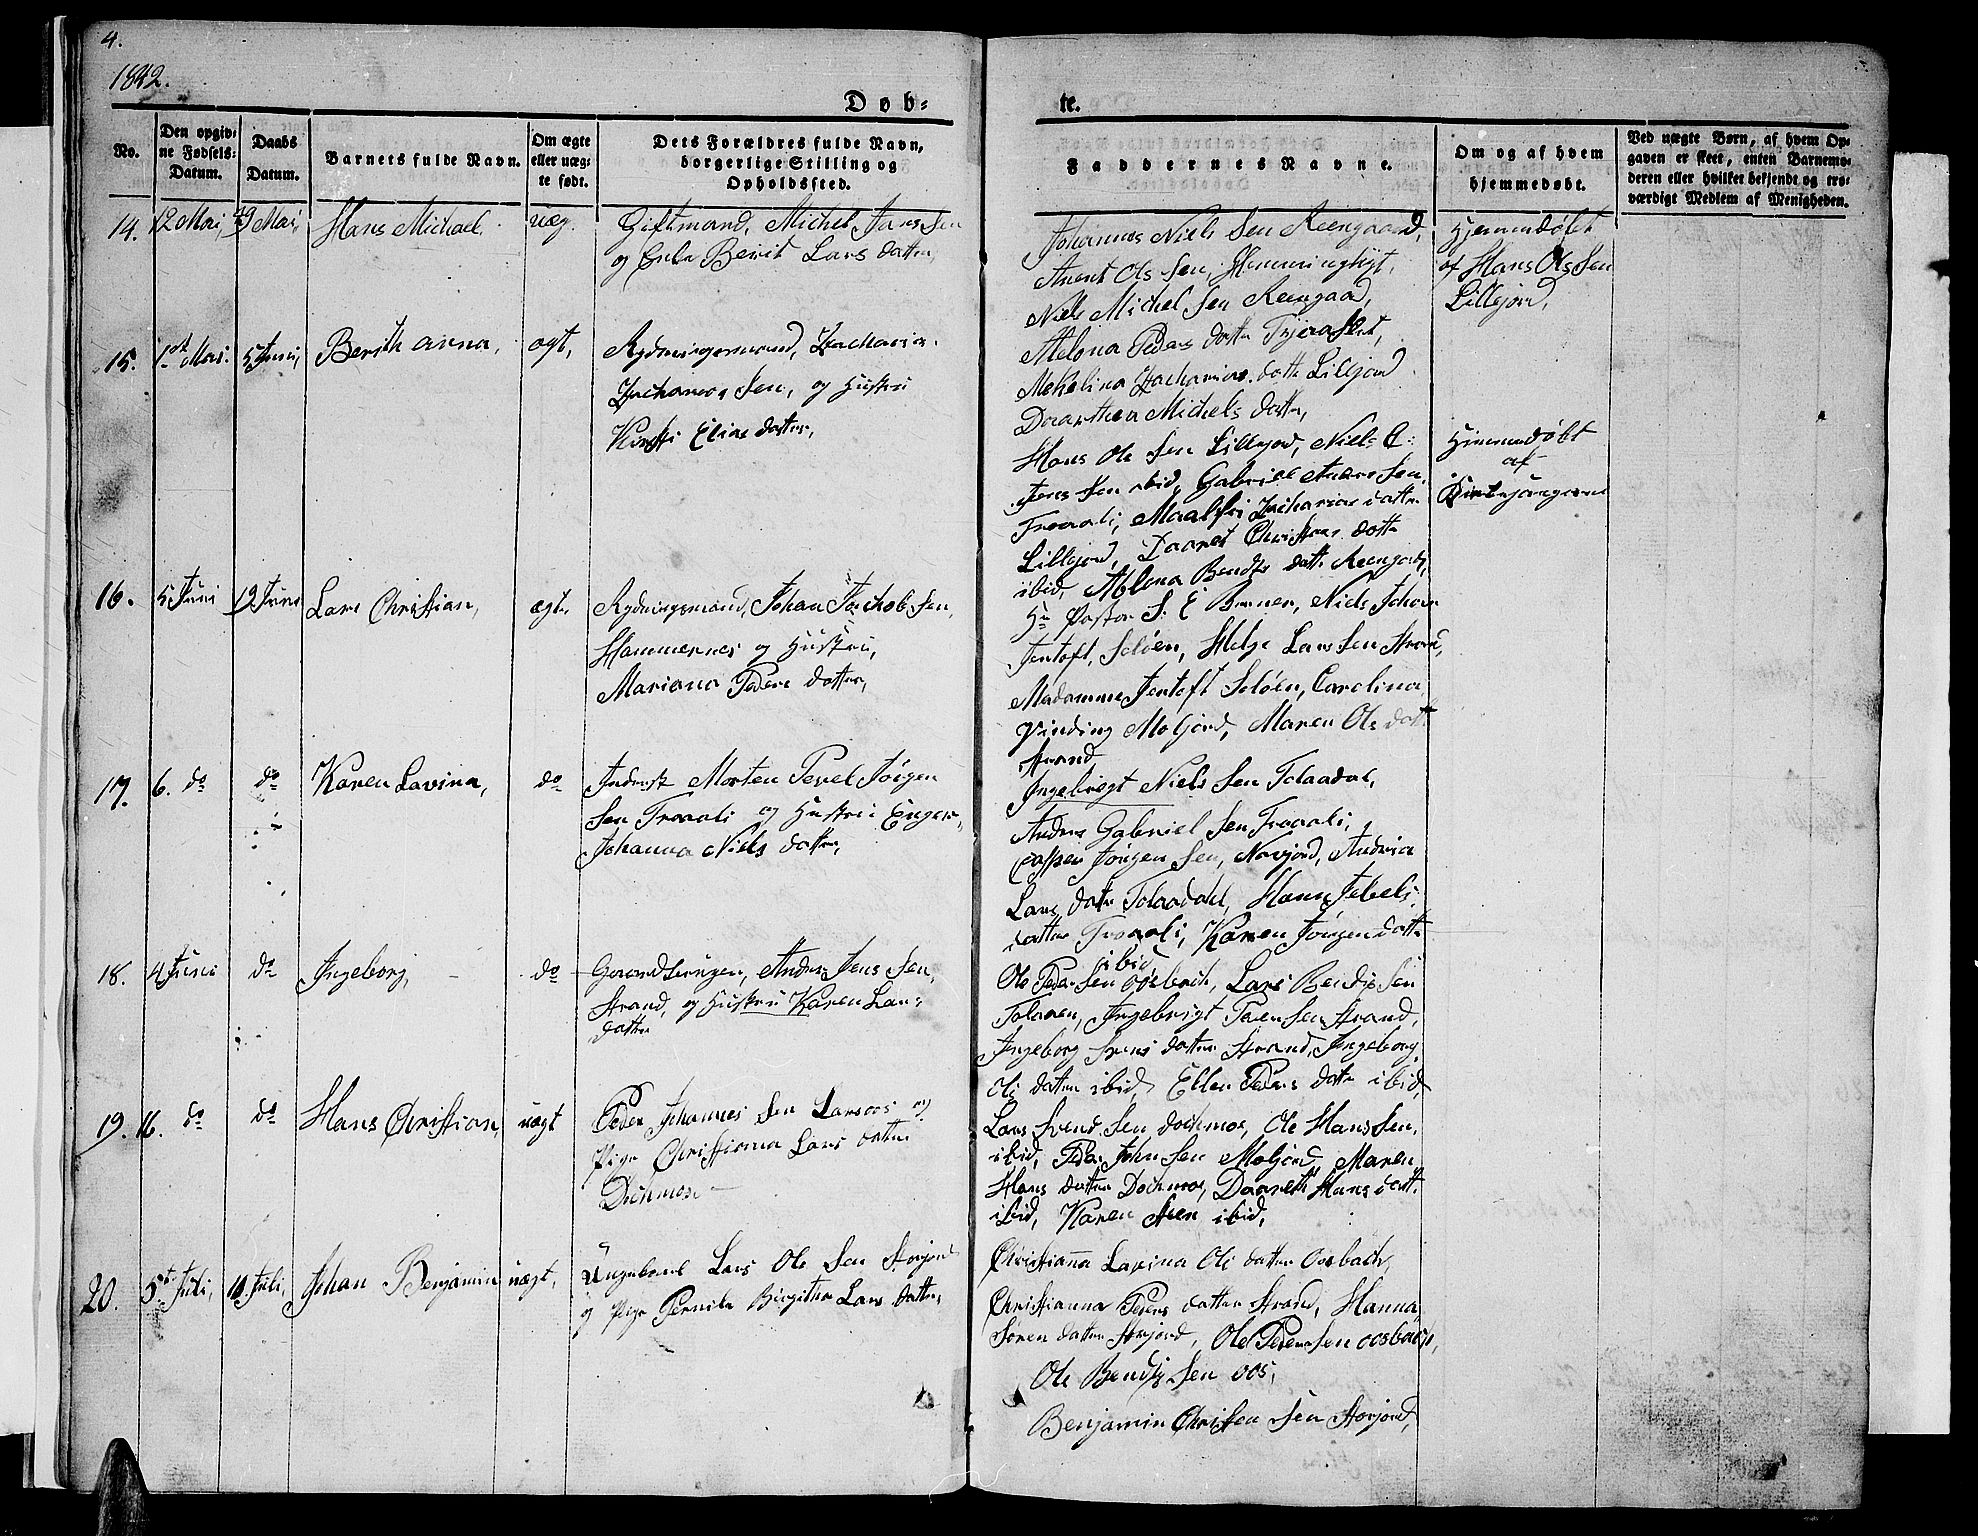 4.
1842.
Døb-
te.
No.
Den opgiv-
ne Fødsels-
Datum.
Daabs
Datum.
Barnets fulde Navn.
Om ægte
eller uæg-
te født.
Dets Forældres fulde Navn,
borgerlige Stilling og
Opholdssted.
Faddernes Navne.
Om og af hvem
hjemmedøbt.
Ved uægte Børn, af hvem Op-
gaven er skeet, enten Barnemo-
deren eller hvilket bekjendt og tro-
værdigt Medlem af Menigheden.
14. 12 Mai, 29 Mai, Hans Michael uæg. Giftmand, Michel Jans Sen
og Enke Berit Lars datter,
Johannes Niels Sen Reengaard,
Anent Ols Sen, Hemminghyt,
Niels Michel Sen Reengaard,
Helena Peders datter
Mekelina Zacharias datt Lillejord
Daarthea Michels datter,
Hjemmedøbt
af Hans Ols Sen
Lillejord,
15. 1st Mai. 5 Juni, Berith Anna, ægt, Rydningsmand, Zacharia-
Zacharias Sen, og Hustru
Kirsti Elias datter,
Hans Ole Sen Lillejord, Niels
Jens Sen ibid, Gabriel Anders Sen,
Troaali, Zacharias datter
Lillejord, Daaret Christians datter
ibid, Helena Bendts datt Reengard,
Hjemmedøbt
af
16. 5 Juni 19 Juni Lars Christian, ægt, Rydningsmand, Johan Jachob Sen,
Hammernes og Hustru,
Mariana Peders datter,
Hr Pastor S. E Niels Johan
Jentoft, Soløen, Helge Lars Sen Strand,
Madamme Jentoft Soløen, Carolina
Vinding Moljord, Maren Ols datt
Strand
17. 6. do do Karen Lavina, do Inderst Morten Pevel Jörgen
Sen Troaali og Hustru
Johanna Niels datter,
Ingebrigt Niels Sen Tolaadal,
Anders Gabriel Sen Troaali,
Casper Jörgen Sen, Navjord, Andrea
Lars datter Tolaadal, Hans
datter Troaali, Karen Jörgen datter
ibid
18. 4 Juni do Ingeborg, do Gaardbruger, Anders Jens Sen,
Strand, og Hustru Karen Lars
datter
Ole Peder Sen Oosbach, Lars Bendix Sen
Tolanen, Ingebrigt Peder Sen Strand,
Ingeborg Svens datter Strand, Ingeborg
Ols datter ibid, Ellen Peders datter ibid,
19. 16. do do Hans Christian, uægt Peder Johannes Sen Larsoos og
Pige Christianna Lars datter
Dochmoe
Lars Svend Sen Dochmoe, Ole Hans Sen,
ibid, Peder John Sen Moljord, Maren
Hans datter Dochmoe, Daareth Hans datt
ibid, Karen Steen ibid,
20. 5t Juli, 10. Juli, Johan Benjamin uægt, Ungekarl Lars Ole Sen Storjord
og Pige Pernile Birgitha Lars datter,
Christianna Lavina Ols datter Oosbach,
Christianna Peders datter Strand, Hanna
Søren datter Storjord, Ole Peder Sen Oosbach,
Ole Bendix Sen Oos,
Benjamin Christen Sen Storjord,